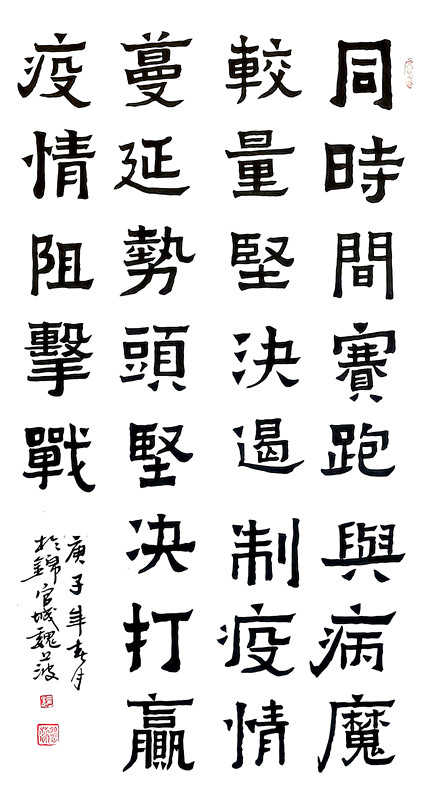 同時間賽跑與病魔
較量堅決遏制疫情
蔓延勢頭堅决打贏
疫情阻擊戰
庚子年春月
於錦官城魏波